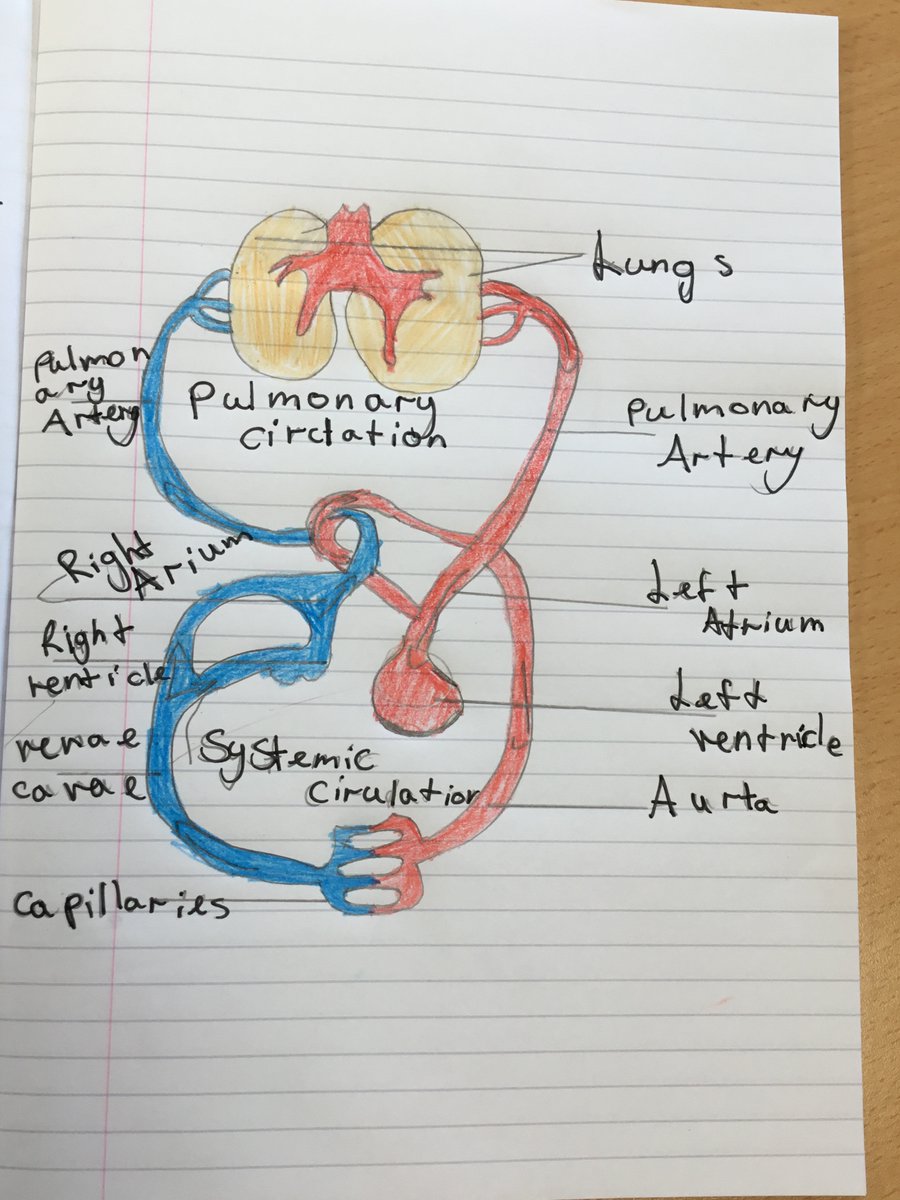 Lungs
Pulmon
ary
Artery
Pulmonary
Circtation
Pulmonary
Artery
Right
Arium
Left
Atrium
Right
venticle
venae
cavae
Left
ventricle
Systemic
Cirulation
Aurta
Capillaries